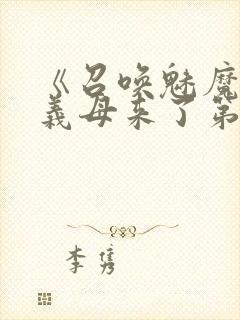 《召唤魅魔
义母来了第
李隽